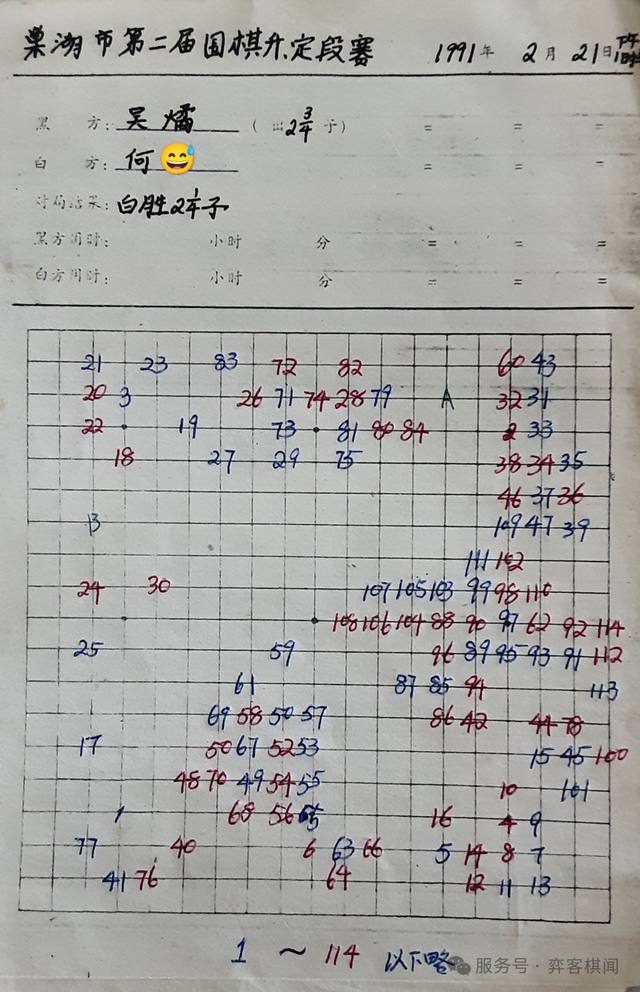 巢湖市第二届围棋升、定段赛 1991年 2月 21日 下午1时
黑 方: 吴燏 ( 出 2 3/4 子) = = =
白 方: 何 = = =
对局结果: 白胜2 1/4子
黑方用时: 小时 分 = = =
白方用时: 小时 分 = = =
21 23 83 72 82 60 43
20 3 26 71 74 28 79 A 32 31
22 19 73 81 80 84 2 33
18 27 29 75 38 34 35
46 37 36
13 109 47 39
111 102
24 30 107 105 103 99 98 110
108 106 104 88 90 97 62 92 114
25 59 96 89 95 93 91 112
61 87 85 94 113
69 58 50 57 86 42 44 78
17 50 67 52 53 15 45 100
48 70 49 54 55 10 101
1 68 56 65 16 4 9
77 40 6 63 66 5 14 8 7
41 76 64 12 11 13
1 ～ 114 以下略
服务号 · 弈客棋闻